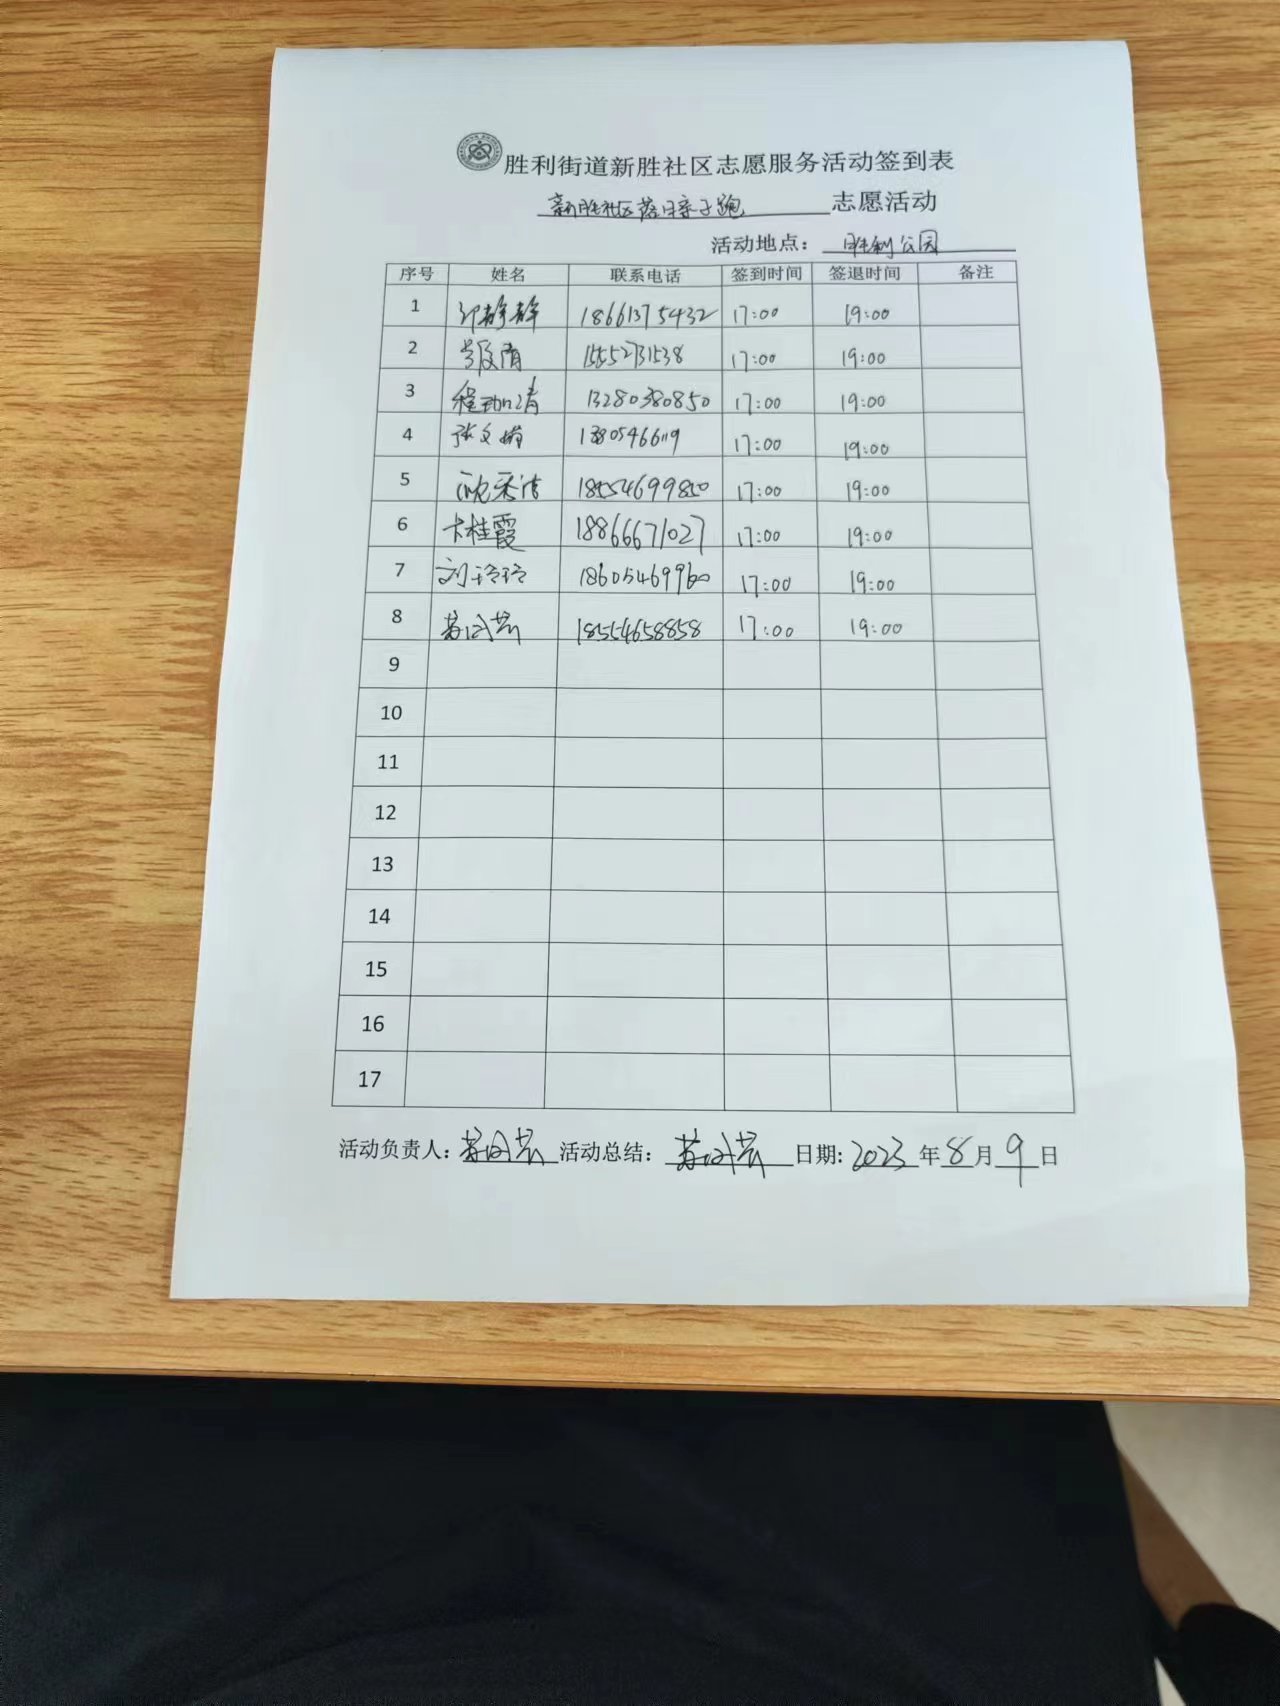 胜利街道新胜社区志愿服务活动签到表
新胜社区落日亲子跑 志愿活动
活动地点： 胜利公园
序号 姓名 联系电话 签到时间 签退时间 备注
1 静静 18661375432 17:00 19:00
2 15552731538 17:00 19:00
3 程 13280380850 17:00 19:00
4 张文 17:00 19:00
5 18554699850 17:00 19:00
6 卞桂霞 18866671027 17:00 19:00
7 刘玲玲 18605469960 17:00 19:00
8 18554658858 17:00 19:00
9
10
11
12
13
14
15
16
17
活动负责人： 活动总结： 日期: 2023 年 8 月 9 日